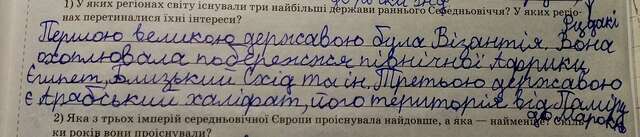 1) У яких регіонах світу існували три найбільші держави раннього Середньовіччя? У яких регіо-
нах перетиналися їхні інтереси?
Першою великою державою була Візантія. Вона
охоплювала побережжя північної Африки
Єгипет, Близький Схід та ін. Третьою державою
є Арабський халіфат, його територія від Паміру
до Марокко
2) Яка з трьох імперій середньовічної Європи проіснувала найдовше, а яка — найменше? Скіль-
ки років вони проіснували?